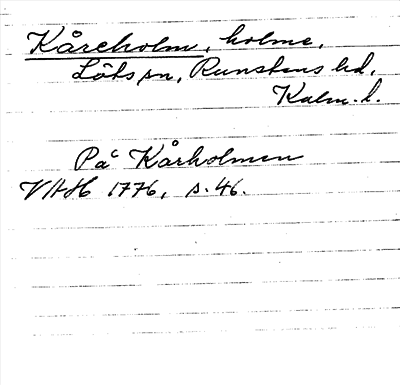 Kåreholm, holme,
Löts sn, Runstens hd,
Kalm. l.
På Kårholmen
VHAH 1776, s. 46.